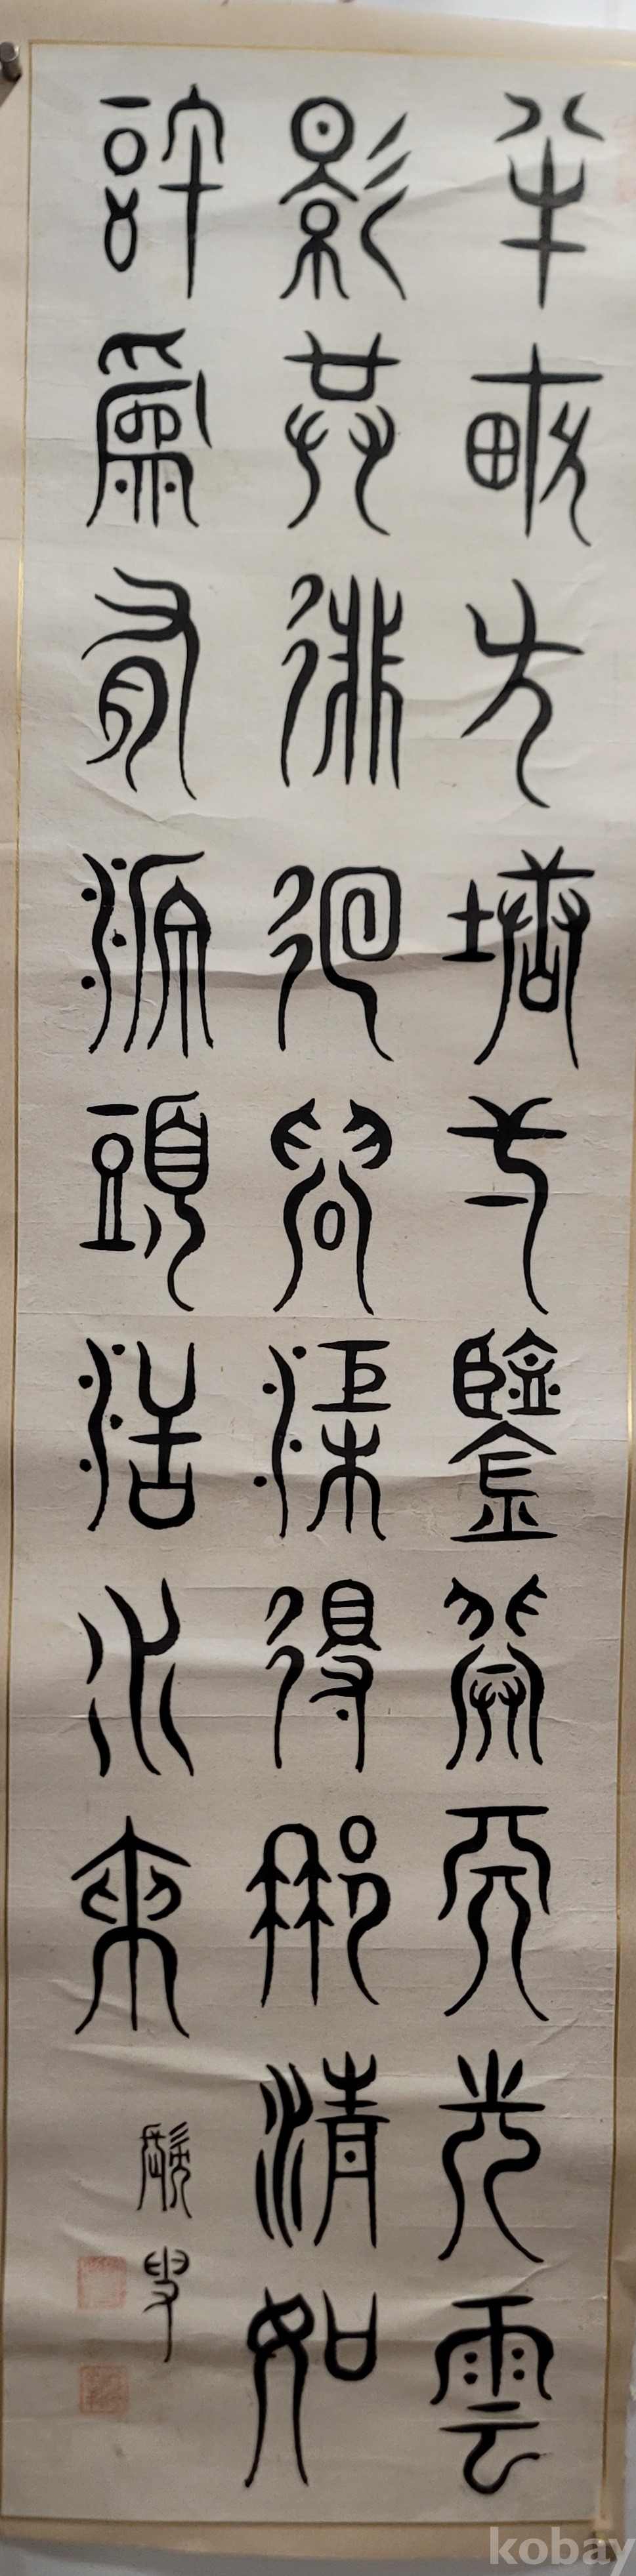 半畝方塘弌鑒開天光雲
影共徘徊問渠得那清如
許爲有源頭活水來
叟
kobay